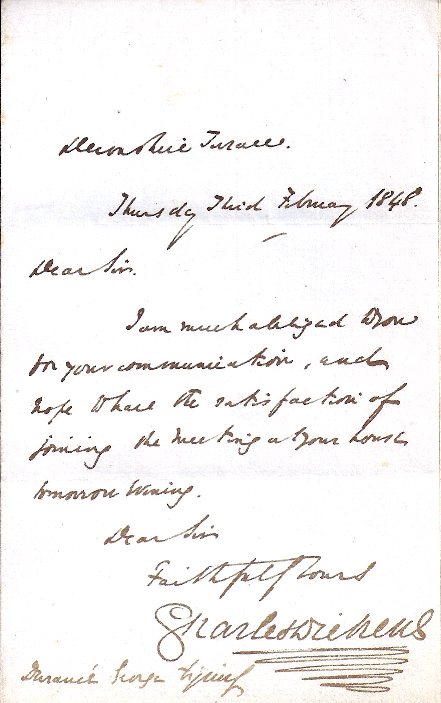 Devonshire Terrace.
Thursday Third February 1848.
Dear Sir.
I am much obliged to you
for your communication, and
hope to have the satisfaction of
joining the meeting at your house
tomorrow Evening.
Dear Sir
Faithfully Yours
Charles Dickens
George